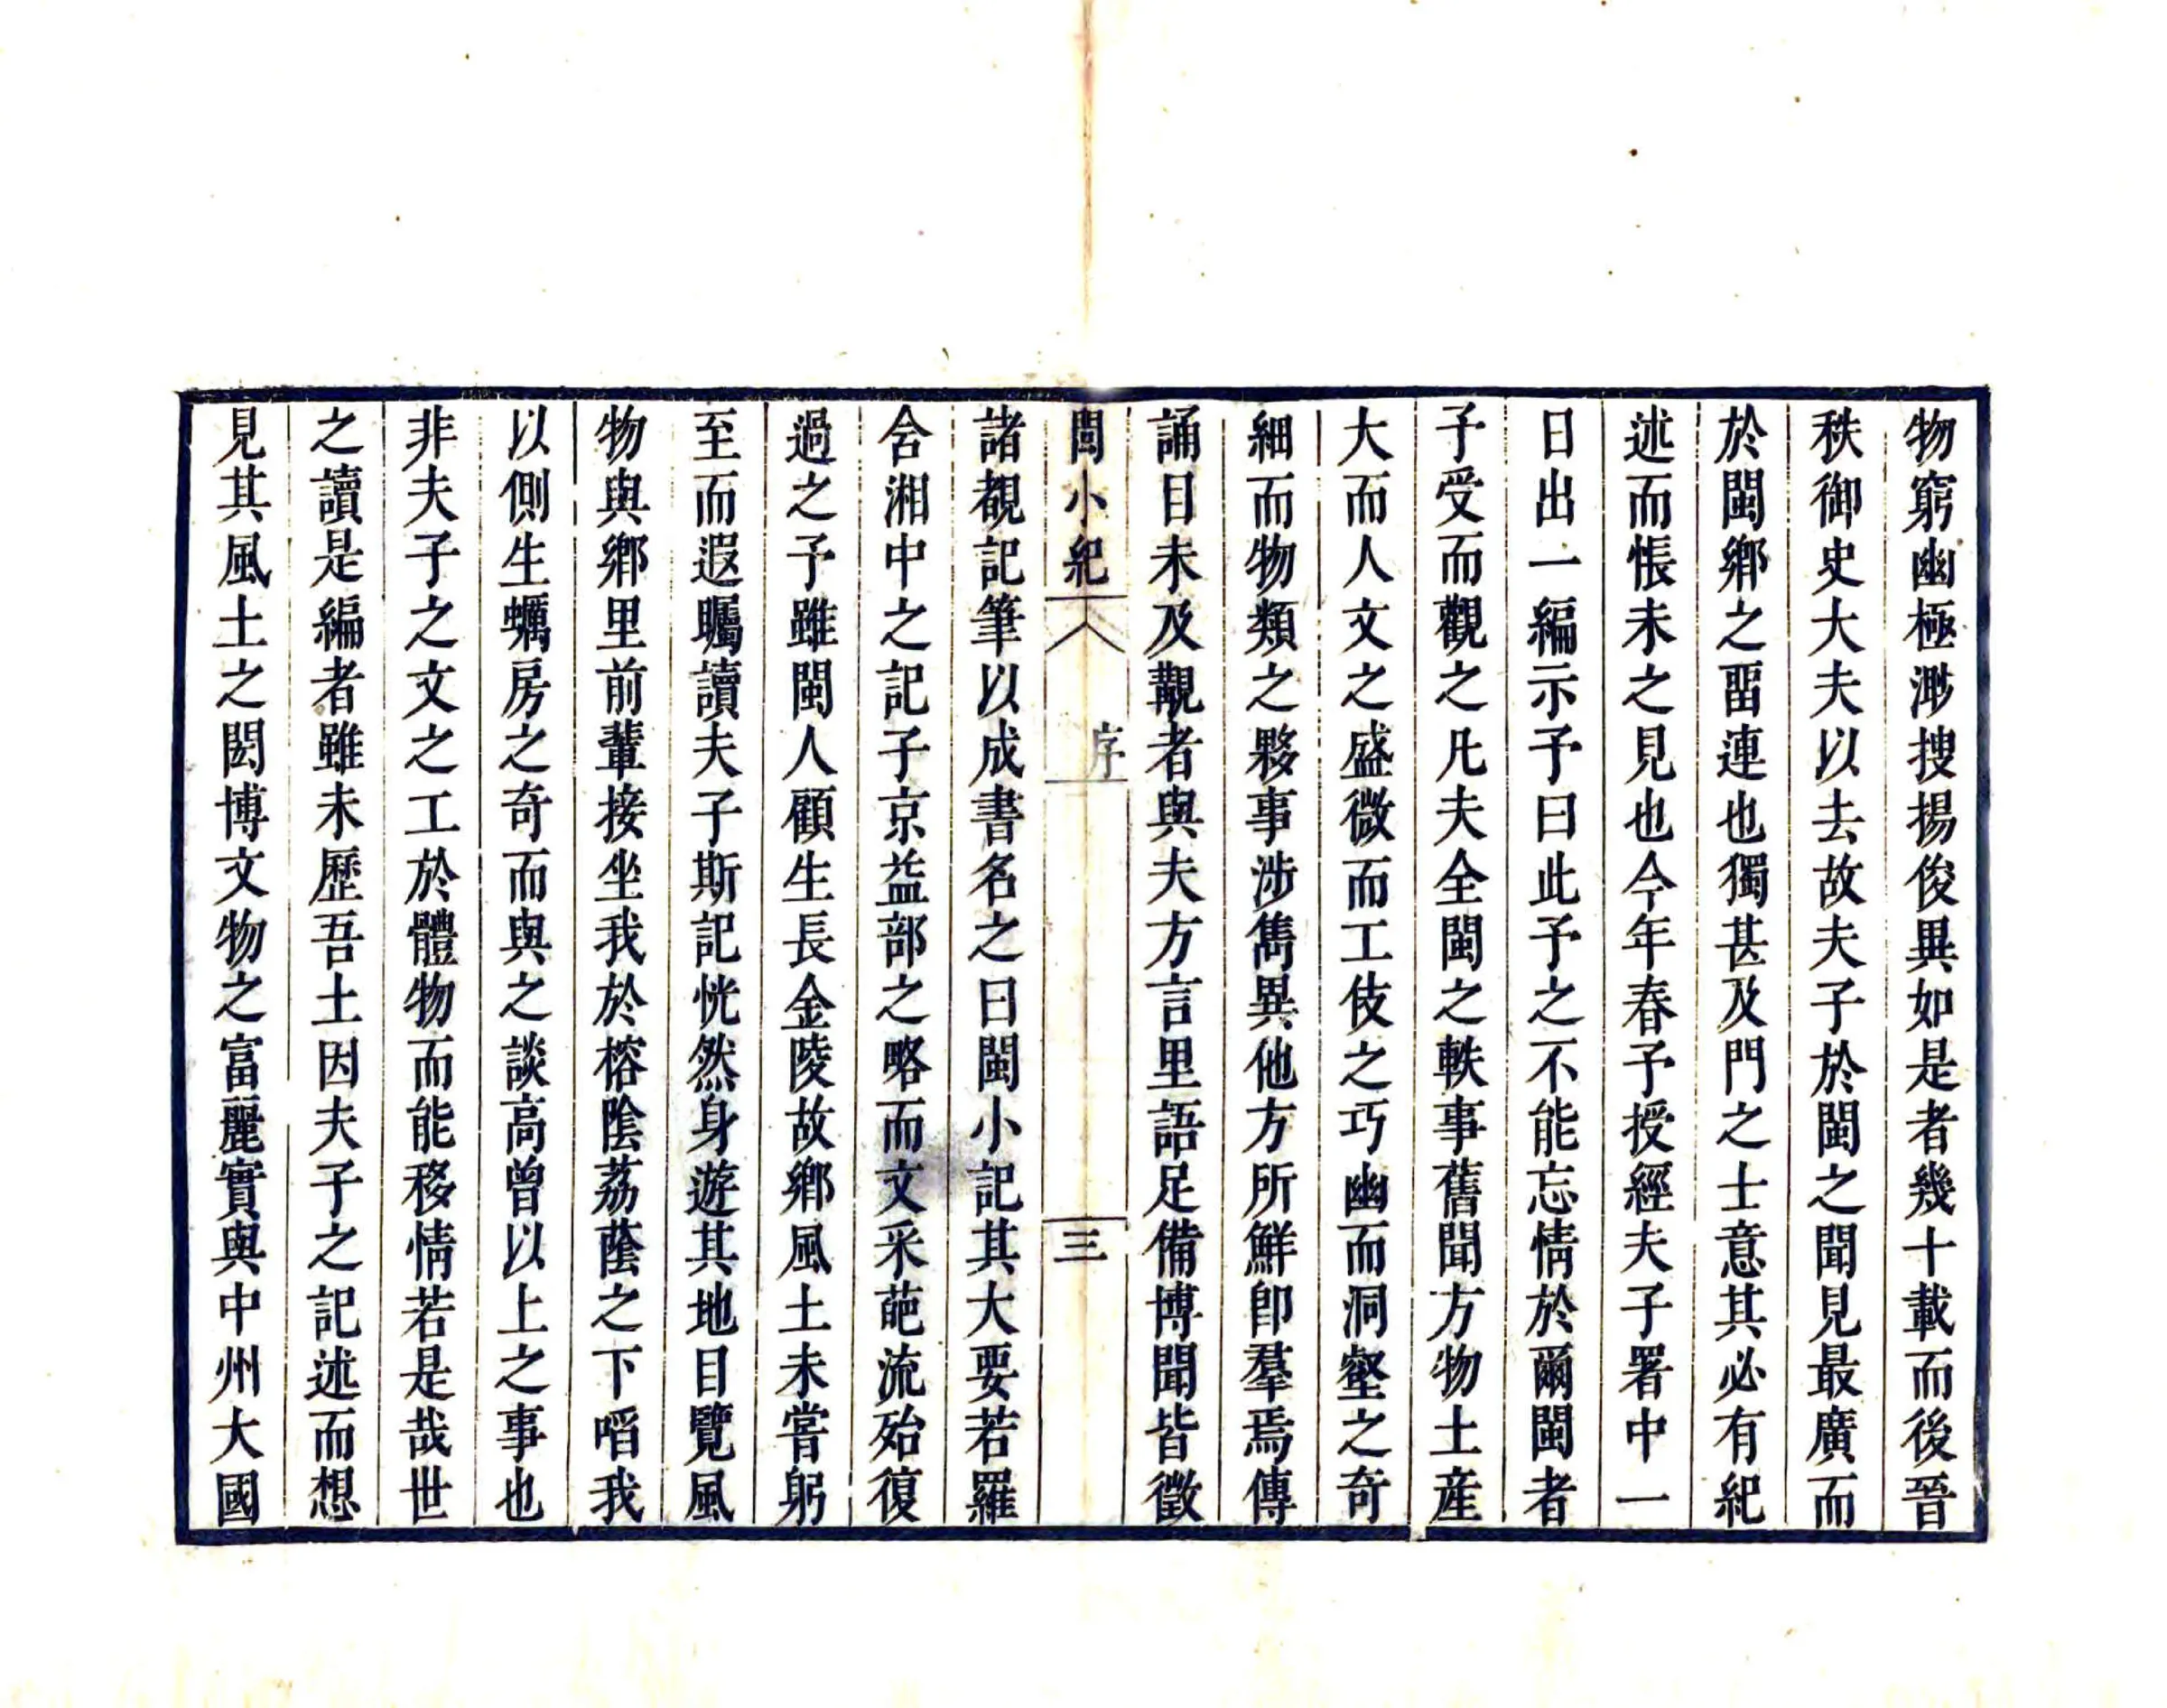 物窮幽極渺搜揚俊異如是者幾十載而後晉
秩御史大夫以去故夫子於閩之聞見最廣而
於閩鄉之畱連也獨甚及門之士意其必有紀
述而悵未之見也今年春予授經夫子署中一
日出一編示予曰此予之不能忘情於爾閩者
予受而觀之凡夫全閩之軼事舊聞方物土産
大而人文之盛微而工伎之巧幽而洞壑之奇
細而物類之夥事涉雋異他方所鮮卽羣焉傳
誦目未及覩者與夫方言里語足備博聞皆徵
閩小紀
序
三
諸覩記筆以成書名之曰閩小記其大要若羅
含湘中之記子京益部之略而文采葩流殆復
過之予雖閩人顧生長金陵故鄉風土未嘗躬
至而遐矚讀夫子斯記恍然身遊其地目覽風
物與鄉里前輩接坐我於榕陰荔蔭之下啗我
以側生蠣房之奇而與之談高曾以上之事也
非夫子之文之工於體物而能移情若是哉世
之讀是編者雖未歷吾土因夫子之記述而想
見其風土之閎博文物之富麗實與中州大國